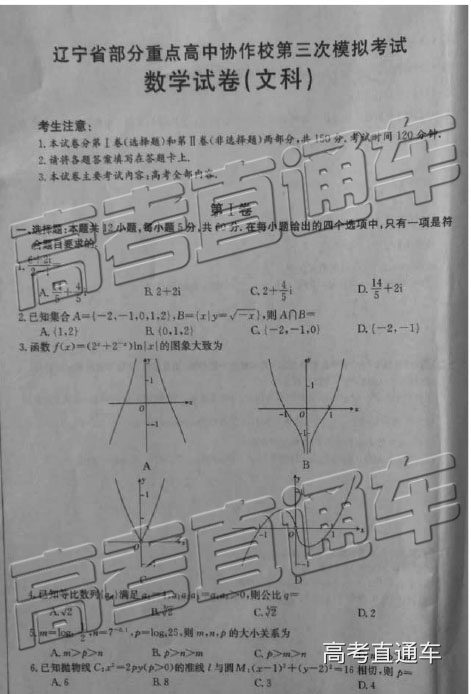 辽宁省部分重点高中协作校第三次模拟考试
数学试卷(文科)
考生注意:
1.本试卷分第Ⅰ卷(选择题)和第Ⅱ卷(非选择题)两部分,共150分.考试时间120分钟.
2.请将各题答案填写在答题卡上.
3.本试卷主要考试内容:高考全部内容.
第Ⅰ卷
一、选择题:本题共12小题,每小题5分,共60分.在每小题给出的四个选项中,只有一项是符
合题目要求的.
1.
A.14/5+4/5i B.2+2i C.2+4/5i D.14/5+2i
2.已知集合A={-2,-1,0,1,2},B={x|y=√-x},则A∩B=
A.{1,2} B.{0,1,2} C.{-2,-1,0} D.{-2,-1}
3.函数f(x)=(2ˣ+2⁻ˣ)ln|x|的图象大致为
A B
C D
4.已知等比数列{aₙ}满足 >0,则公比q=
A.√2 B. C. D.2
5.m=log ,n=7^-0.1,p=log₄25,则m,n,p的大小关系为
A.m>p>n B.p>n>m C.p>m>n
6.已知抛物线C:x²=2py(p>0)的准线l与圆M:(x-1)²+(y-2)²=16相切,则p=
A.6 B.8 C.3 D.4
高考直通车
高考直通车
高考直通车